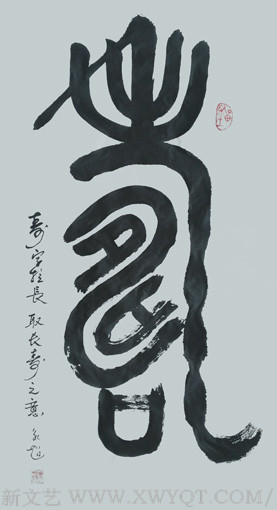 壽
寿字拉長 取长寿之意
新文艺/WWW.XWYQT.COM/